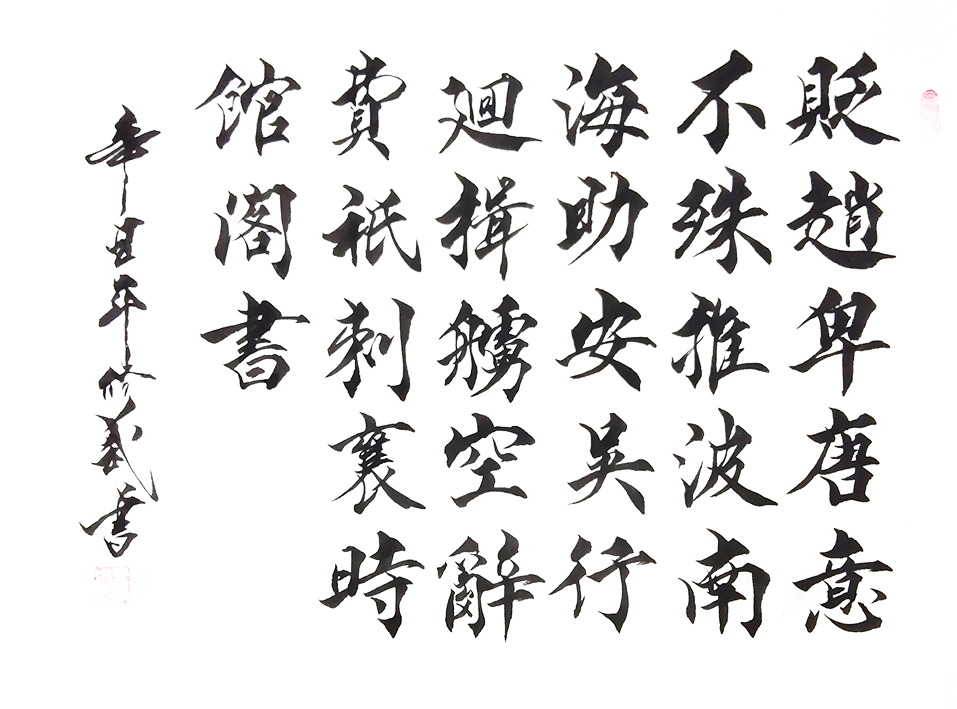 貶趙卑唐意
不殊推波南
海助安吳行
廻揖艣空辭
費祇刺襄時
館閣書
辛丑年修書